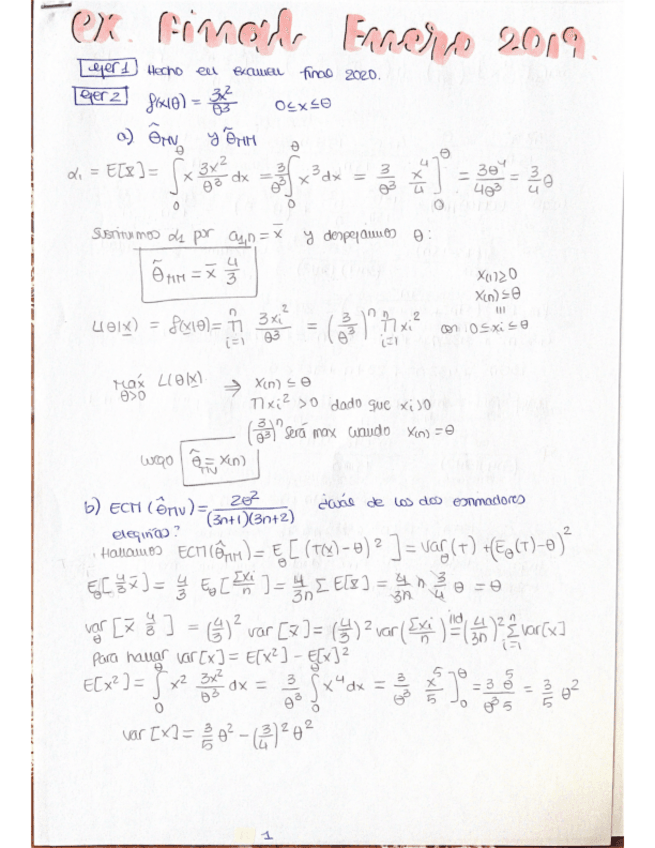 ex. Final Enero 2019.
ejer 1 Hecho en examen final 2020.
ejer 2 f(x|θ) = 3x²/θ³ 0≤x≤θ
a) θ̂_MV y θ̃_MM
α₁ = E[x] = ∫₀^θ x 3x²/θ³ dx = 3/θ³ ∫₀^θ x³ dx = 3/θ³ x⁴/4 ]₀^θ = 3θ⁴/4θ³ = 3/4 θ
Sustituimos α₁ por a₁,n = x̄ y despejamos θ:
θ̃_MM = x̄ 4/3
X(1)≥0
X(n)≤θ
L(θ|x) = f(x|θ) = ∏ᵢ₌₁ⁿ 3xi²/θ³ = (3/θ³)ⁿ ∏ᵢ₌₁ⁿ xi² con 0≤xi≤θ
Máx θ>0 L(θ|x) ⇒ X(n) ≤ θ
∏xi² >0 dado que xi>0
(3/θ³)ⁿ será max cuando X(n) = θ
luego θ̂_MV = X(n)
b) ECM(θ̂_MV) = 2θ²/(3n+1)(3n+2) ¿cuál de los dos estimadores
elegirías?
Hallamos ECM(θ̃_MM) = E_θ[(T(x)-θ)²] = Var_θ(T) + (E_θ(T)-θ)²
E_θ[4/3 x̄] = 4/3 E_θ[Σxi/n] = 4/3n Σ E[x] = 4/3n n 3/4 θ = θ
var_θ[x̄ 4/3] = (4/3)² var[x̄] = (4/3)² var(Σxi/n) ind= (4/3n)² Σᵢ₌₁ⁿ var[x]
Para hallar var[x] = E[x²] - E[x]²
E[x²] = ∫₀^θ x² 3x²/θ³ dx = 3/θ³ ∫₀^θ x⁴ dx = 3/θ³ x⁵/5 ]₀^θ = 3θ⁵/θ³5 = 3/5 θ²
var[x] = 3/5 θ² - (3/4)² θ²
1